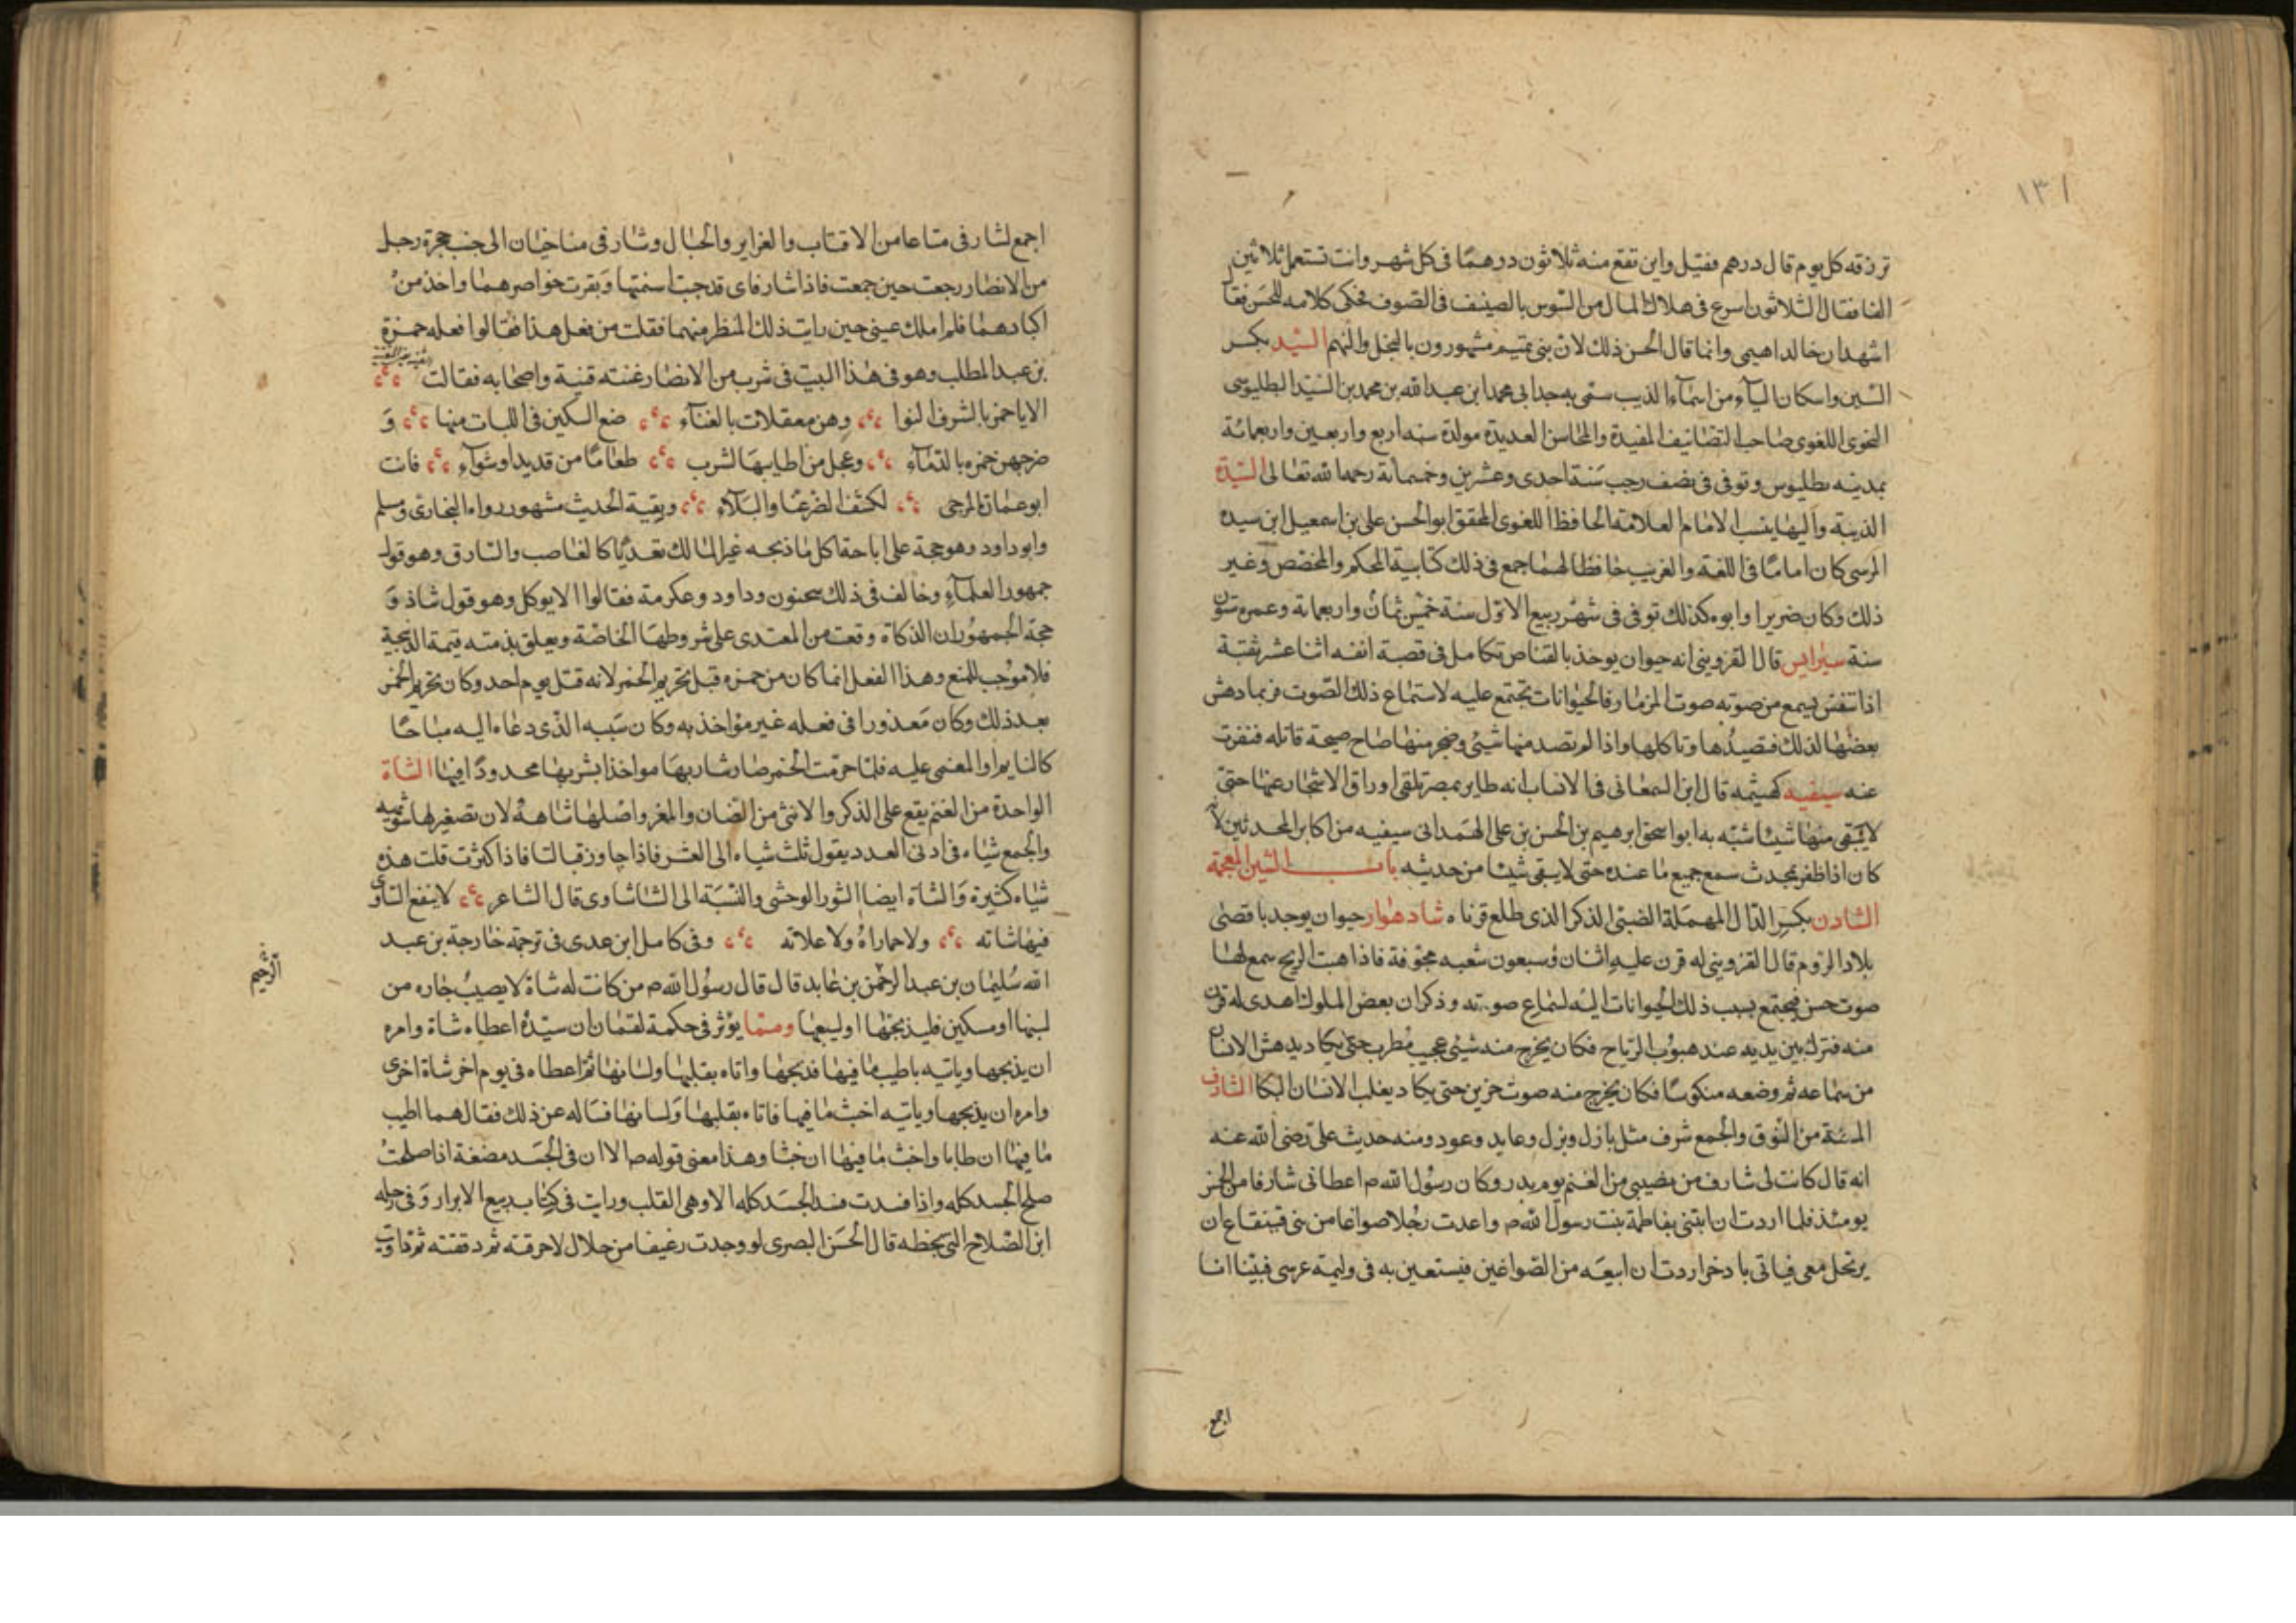 ١٣١
ترزقه كل يوم قال درهم فقيل واين تقع منه ثلاثون درهمًا فى كل شهر وانت تستعمل ثلاثين
الفا فقال الثلاثون اسرع فى هلاك المال من السّوس بالصيف فى الصّوف فحكى كلامه للحسَن فقا
اشهد ان خالدا هيمى وانما قال الحسن ذلك لان بنى تميم مشهورون بالبخل والنهم السّيد بكسر
السّين واسكان الياء من اسمآء الذيب سمّى به جد ابى محمد ابن عبد الله بن محمد بن السّيد البطليوسى
النحوى اللغوى صاحب التصانيف المفيدة والمحاسن العديدة مولده سنه اربع واربعين واربعمائة
بمدينه بطليوس وتوفى فى نصف رجب سَنة احدى وعشرين وخمسمأئة رحمه الله تعالى السّيدة
الذيبة واليها ينسب الامام العلامة الحافظ اللغوى المحقق ابو الحسن على بن اسمعيل ابن سيده
المرسى كان امامًا فى اللغة والغريب حافظا لهما جمع فى ذلك كتابية المحكم والمخصص وغير
ذلك وكان ضريرا وابوه كذلك توفى فى شهر ربيع الاوّل سنة خمس ثمان واربعمائة وعمره ستون
سنة سيرايس قال القزوينى انه حيوان يوخذ بالقناص تكامل فى قصبة انفه اثنا عشر ثقبة
اذا تنفس يسمع من صوته صوت المزمار فالحيوانات تجتمع عليه لاستماع ذلك الصّوت فربما دهش
بعضها لذلك فتصيدُها وتاكلها واذا لم تصد منها شيئى وضجر منها صاح صيحة قاتله فنفرت
عنه سيفيه كميثمه قال ابن السمعانى فى الانساب انه طاير بمصر تلقى اوراق الاشجار عنها حتى
لا يَبقى منها شيئا شبّه به ابو اسحق ابرهيم بن الحسن بن على الهمدانى سيفيه من اكابر المحدثين لانّه
كان اذا ظفر بمحدث سمع جميع ما عنده حتى لا يبقى شيئا من حديثه باب الشين المعجمة
الشادن بكسر الدّال المهملة الضبى الذكر الذى طلع قرناه شادهوار حيوان يوجد باقصى
بلاد الرّوم قال القزوينى له قرن عليه اثنان وسبعون شعبه مجوّفة فاذا هبت الريح سمع لها
صوت حسن فيجتمع بسبب ذلك الحيوانات اليه لسماع صوته وذكر ان بعض الملوك اهدى له قرن
منه فترك بين يديه عند هبوُب الرّياح فكان يخرج منه شيئى عجيب مُطرب حتى يكاد يدهش الانسان
من سماعه ثم وضعه منكوسًا فكان يخرج منه صوت حزين حتى يكاد يغلب الانسان البكا الشارف
المسنة من النّوق والجمع شرف مثل بازل وبزل وعايد وعود ومنه حديث على رضى الله عنه
انه قال كانت لى شارف من نصيبى من الغنم يوم بدر وكان رسوُل الله ص اعطانى شارفا من الخمز
يومئذ فلما اردت ان ابتنى بفاطمة بنت رسول الله ص واعدت رجُلا صواغا من بنى قينقاع ان
يرتحل معى فياتى باذخر اردت ان ابيعَه من الصّواغين فيستعين به فى وليمة عرسى فبَينا انا
اجمع
اجمع لشارفى متاعا من الاقتاب والغراير والحبال وشارفى مناختان الى جنب حجرة رجل
من الانصار رجعت حين جمعت فاذا شارفاى قد جبت اسنمتها وَبقرت خواصرهما واخذ منْ
اكبادهما فلم املك عينى حين رايت ذلك المنظر منهما فقلت من فعل هذا فقالوا فعله حمزة
بن عبد المطلب وهو فى هذا البيت فى شرب من الانصار غنته قينة واصحابه فقالت
الا يا حمز بالشرف النوا وهن معقلات بالفنآء ضع السكين فى اللبات منها وَ
ضرجهن حمزه بالدّمآءِ وعجل من اطايبهَا لشرب طعامًا من قديد او شوآءٍ فانت
ابو عمارة المرجى لكشف الضر عنا والبَلآءِ وبقية الحديث مشهور رواه البخارى ومسلم
وابو داود وهو حجة على اباحة اكل ماذبحه غير المالك تعديًا كالغاصب والسّارق وهو قول
جمهور العلمآءِ وخالف فى ذلك سحنون وداود وعكرمة فقالوا الا يوكل وهو قول شاذ وَ
حجة الجمهوُر ان الذكاة وقعت من المعتدى على شروطهَا الخاصّة ويعلق بذمته قيمة الذبيحة
فلا موُجب للمنع وهذا الفعل انما كان من حمزه قبل تحريم الخمر لانه قتل يوم احد وكان تحريم الخمر
بعد ذلك وكان مَعذورا فى فعله غير مؤاخذ به وكان سَببه الذّى دعاه اليه مباحًا
كالنايم او المغمى عليه فلمّا حرّمت الخمر صار شاربهَا مواخذا بشربها محدودًا فيها الشاة
الواحدة من الغنم يقع على الذكر والانثى من الضان والمغر واصْلها شاهةُ لان تصغيرها شويهه
والجمع شياه فى ادنى العدد يقول ثلث شياه الى العشر فاذا جاوزت فبالتا فاذا كثرت قلت هذه
شياه كثيرة وَالشاة ايضا الثور الوحشى والنّسبَة الى الشا شاوى قال الشاعر لا ينفع الشاوى
فيها شاته ولا حماراهُ ولا علاته وفى كامل ابن عدى فى ترجمة خارجة بن عبد
الله سُليمان بن عبد الرحمن بن عابد قال قال رسُول الله ص من كانت له شاة لا يصيبُ جاره من
لبنها او مسكين فليذبحها او ليبعها ومما يؤثر فى حكمة لقمان ان سيّدهُ اعطاه شاة وامره
ان يذبحها وياتيه باطيب ما فيها فذبحها واتاه بقلبها ولسانها ثم اعطاه فى يوم اخر شاة اخرى
وامره ان يذبحها وياتيه اخبث ما فيها فاتاه بقلبها وَلسانها فسَاله عن ذلك فقال هما اطيب
مٰا فيها ان طابا واخبث مٰا فيها ان خبثا وهذا معنى قوله ص الا ان فى الجسَد مضغة اذا صلحتْ
صلح الجسد كله واذا فسدت فسد الجسَد كله الا وهى القلب ورايت فى كتاب ربيع الابرار وَفى رحله
ابن الصّلاح التى بخطه قال الحسَن البصرى لو وجدت رغيفا من حلال لاحرقته ثم دققته ثم داويت